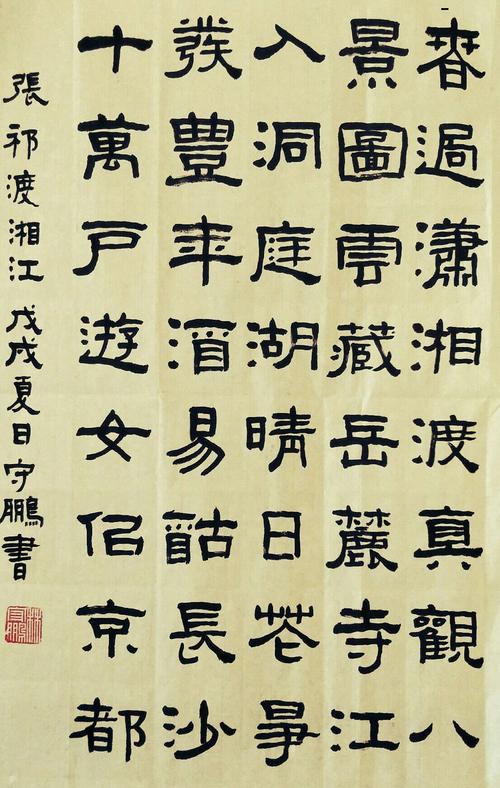 春過瀟湘渡真觀八
景圖雲藏岳麓寺江
入洞庭湖晴日花爭
發豐年酒易酤長沙
十萬戶遊女似京都
張祁渡湘江 戊戌夏日守鵬書